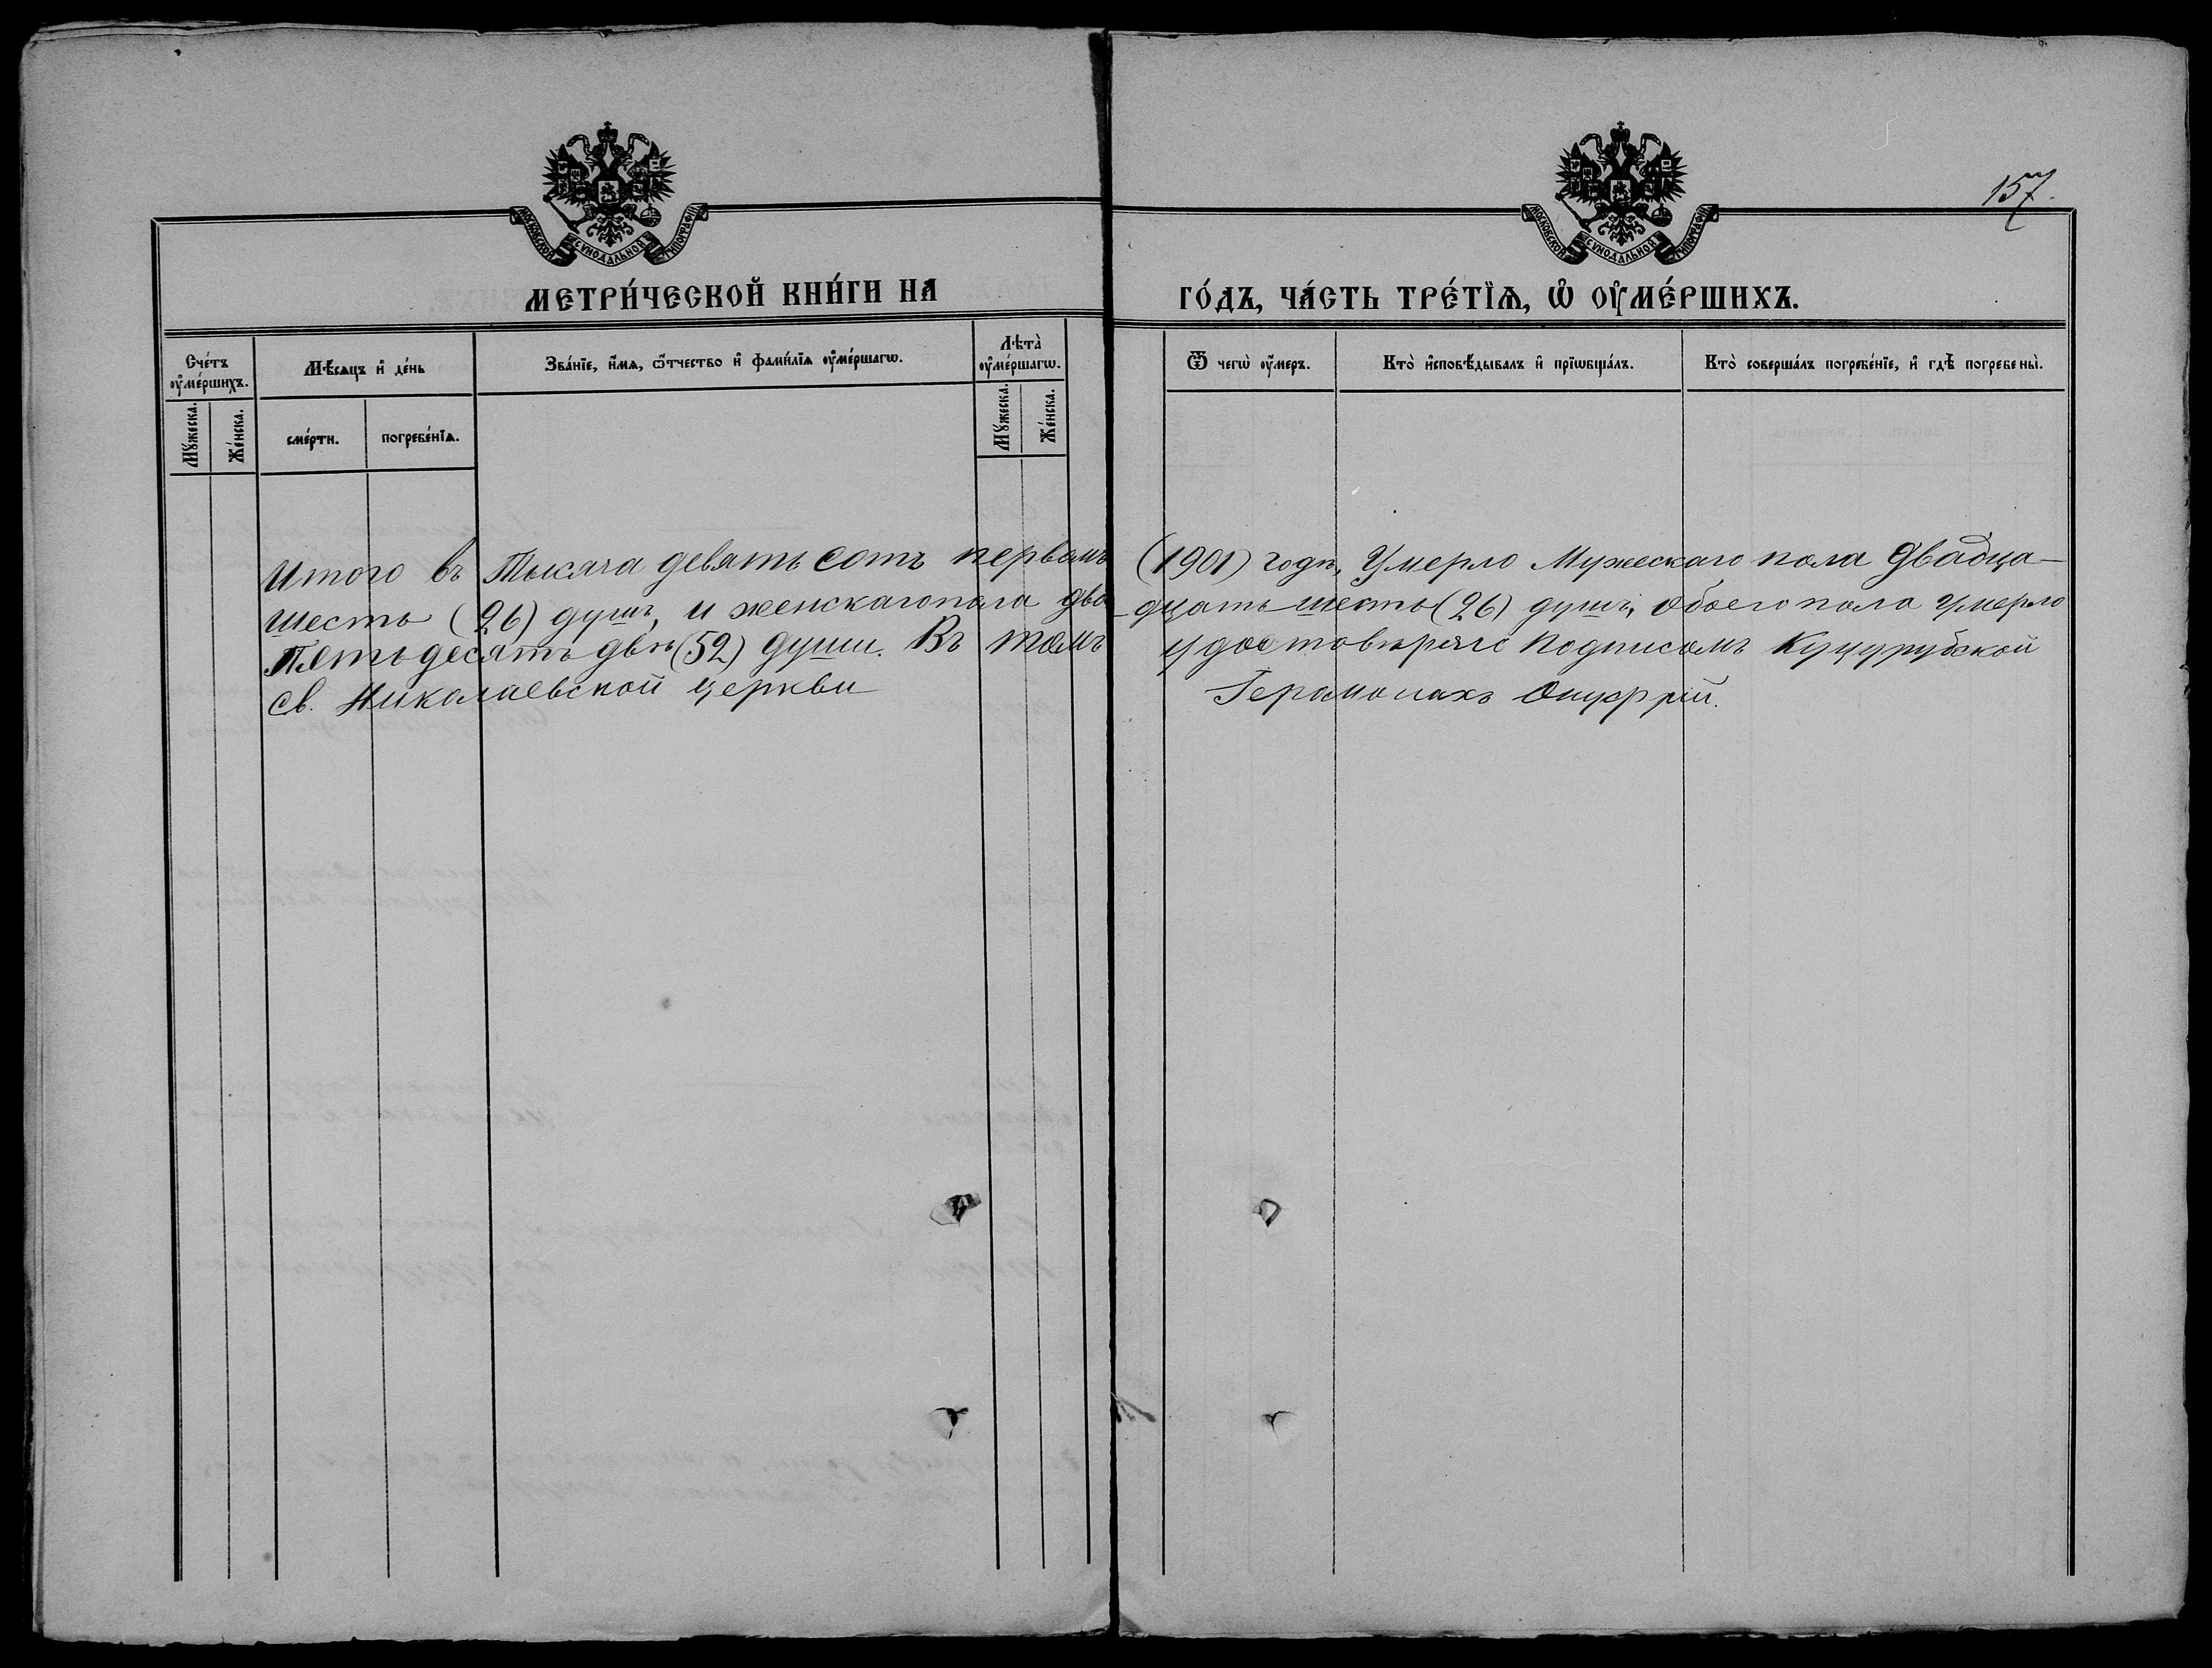 157.
МОСКОВСКОЙ СѴНОДАЛЬНОЙ ТИПОГРАФІИ
МОСКОВСКОЙ СѴНОДАЛЬНОЙ ТИПОГРАФІИ
МЕТРИ́ЧЕСКОЙ КНИ́ГИ НА ГО́ДЪ, ЧА́СТЬ ТРЕ́ТЇѦ, Ѡ҆ ОУ҆МЕ́РШИХЪ.
Сче́тъ оу҆ме́ршихъ.
Мѣ́сѧцъ и҆ де́нь
Зва́нїе, и҆́мѧ, ѻ҆́тчество и҆ фами́лїѧ оу҆ме́ршагѡ.
Лѣта̀ оу҆ме́ршагѡ.
Ѿ чегѡ̀ оу҆́меръ.
Кто̀ и҆сповѣ́дывалъ и҆ прїѡбща́лъ.
Кто̀ соверша́лъ погребе́нїе, и҆ гдѣ̀ погребены̀.
Мꙋ́жеска.
Же́нска.
сме́рти.
погребе́нїѧ.
Мꙋ́жеска.
Же́нска.
Итого въ Тысяча девять сотъ первомъ (1901) годѣ, Умерло Мужескаго пола двадца-
шесть (26) душъ, и женскаго пола два-дцать шесть (26) душъ, Обоего пола умерло
Пятьдесятъ двѣ (52) души. Въ томъ удостовѣряю подписомъ Куцурубской
Св. Николаевской церкви Іеромонахъ Онуфрій.